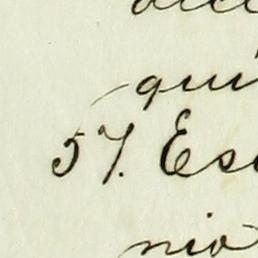 qui
57. Es
nio